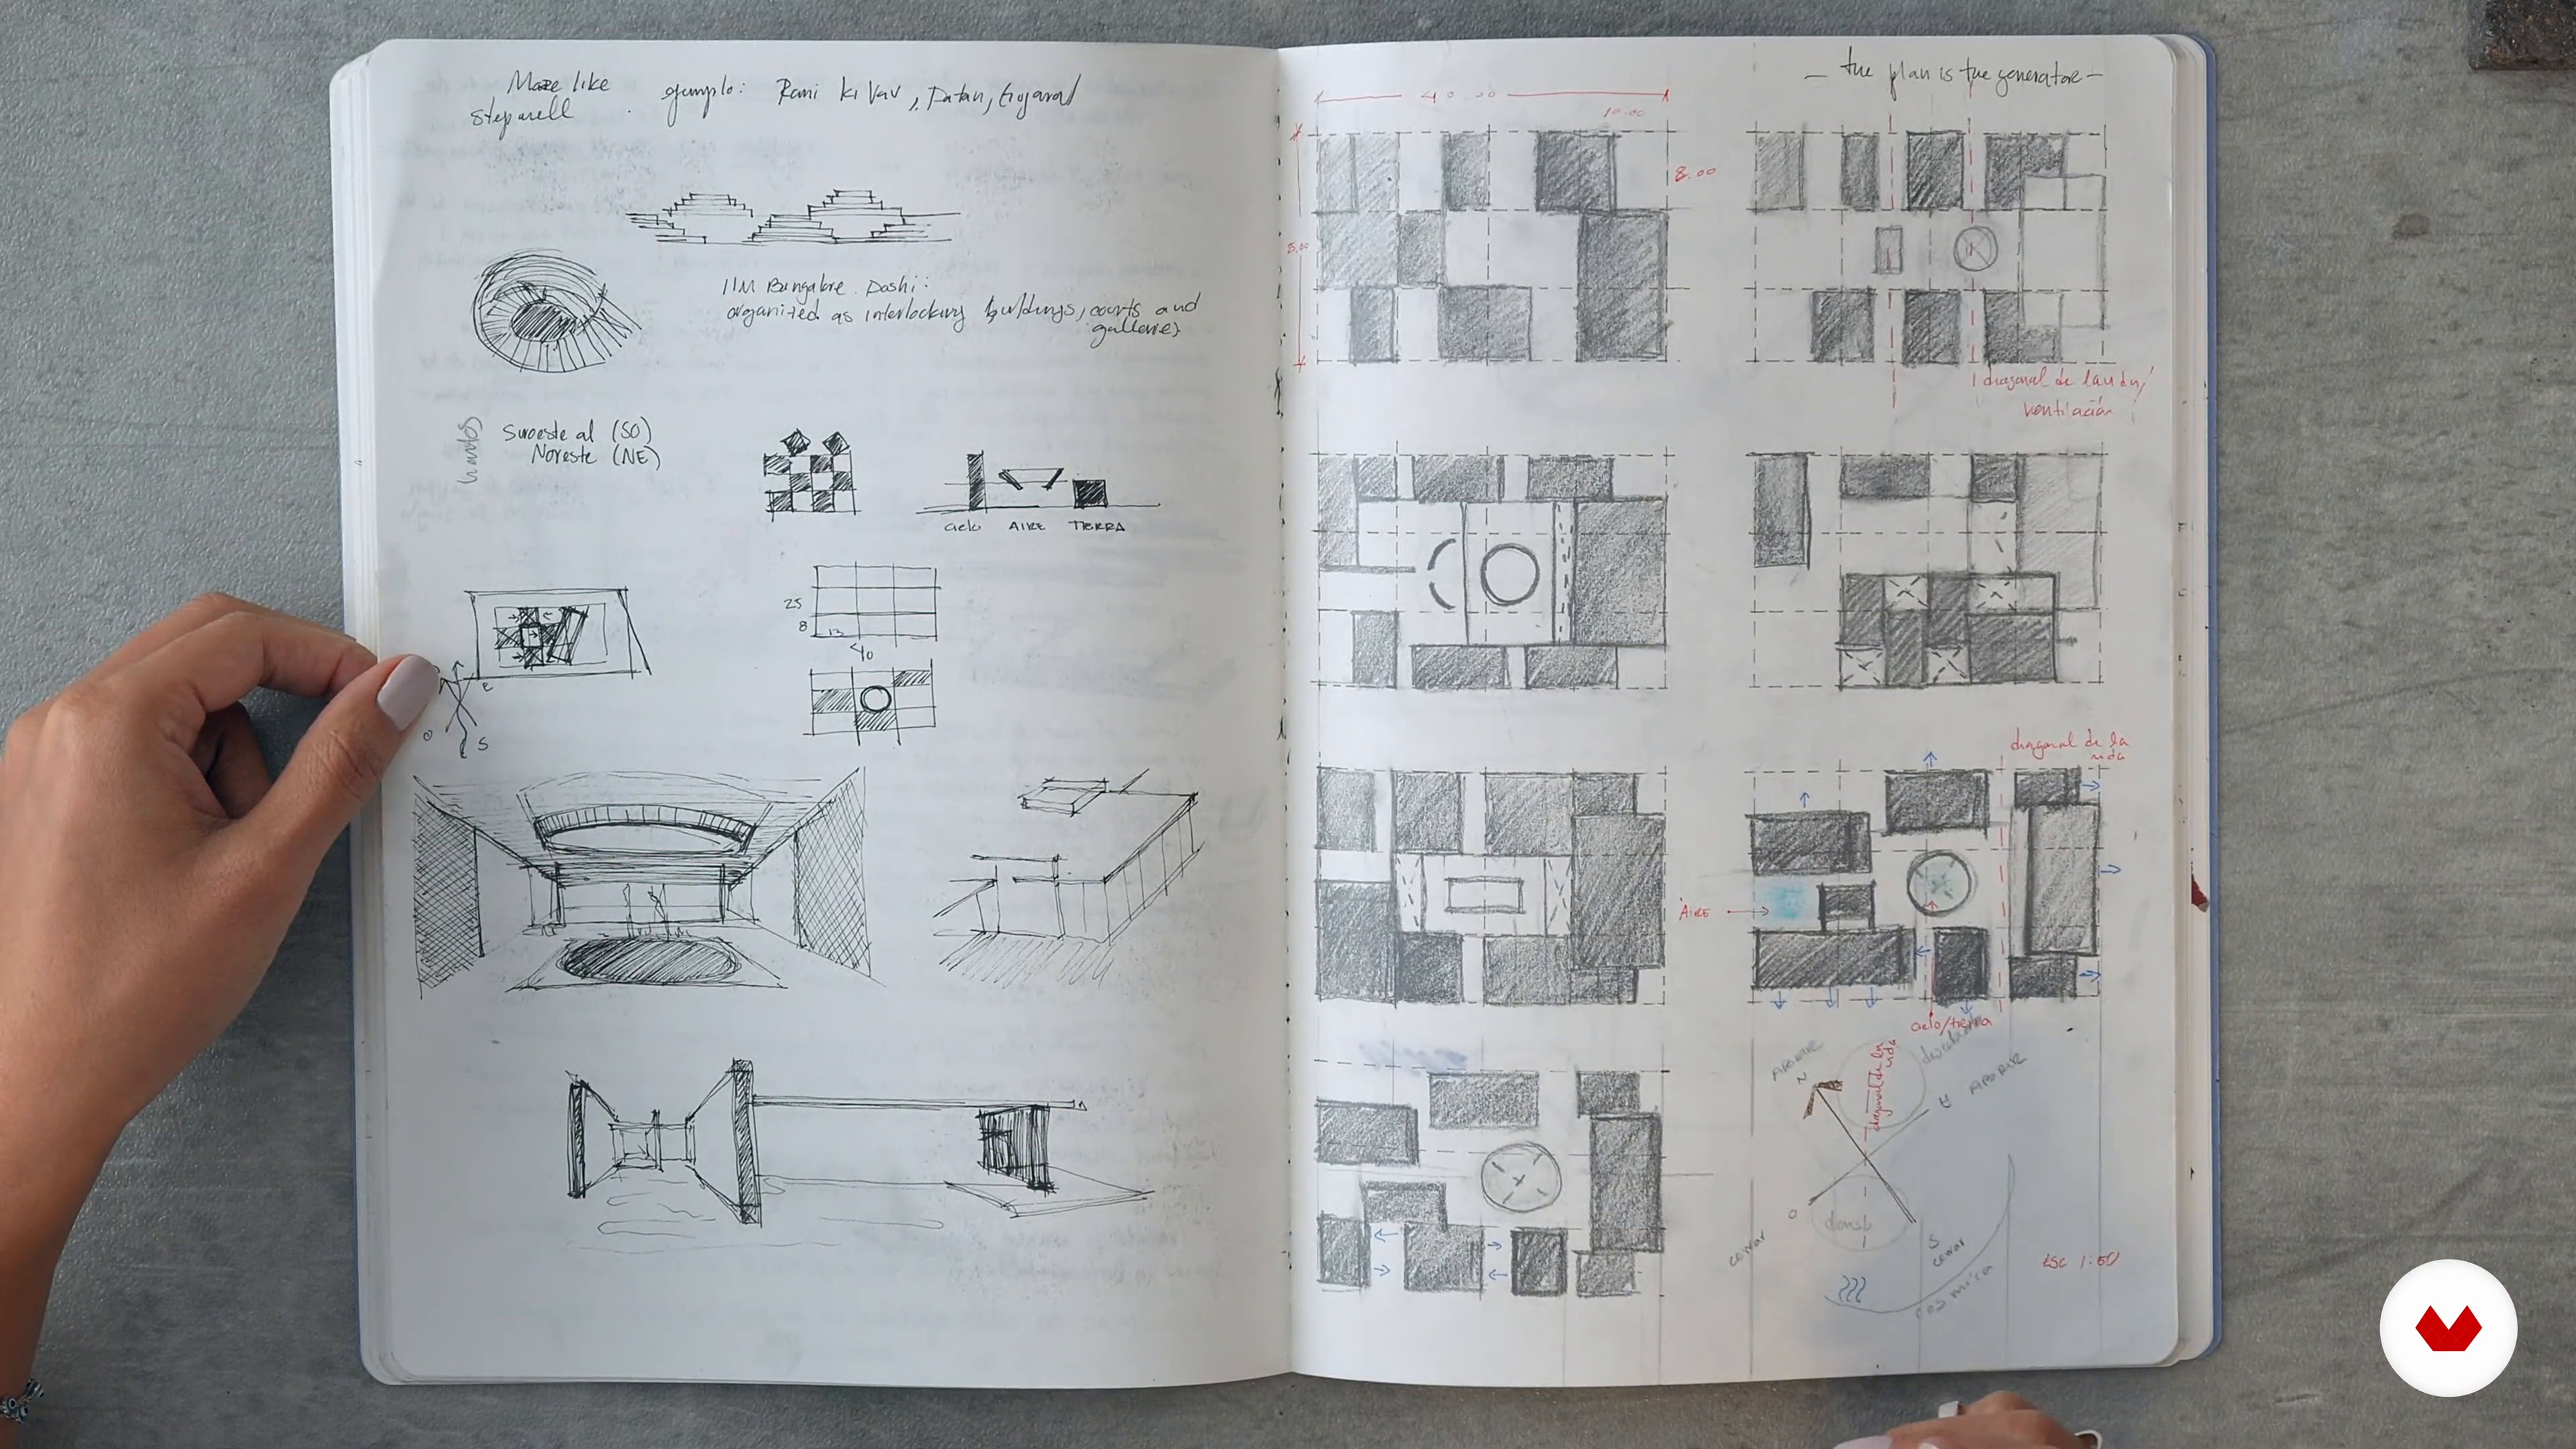 Maze like
stepwell
ejemplo: Rani ki Vav, Patan, Gujarat
IIM Bangalore Doshi:
organized as interlocking buildings, courts and
galleries
Suroeste al (SO)
Noreste (NE)
cielo AIRE TIERRA
25
8
13
40
E
O
S
— the plan is the generator —
40.00
10.00
8.00
8.00
diagonal de
ventilación
diagonal de la
AIRE
cielo/tierra
ABRIR
N
diagonal de la
ABRIR
O
denso
S
cerrar
cerrar
cosmica
ESC 1:50